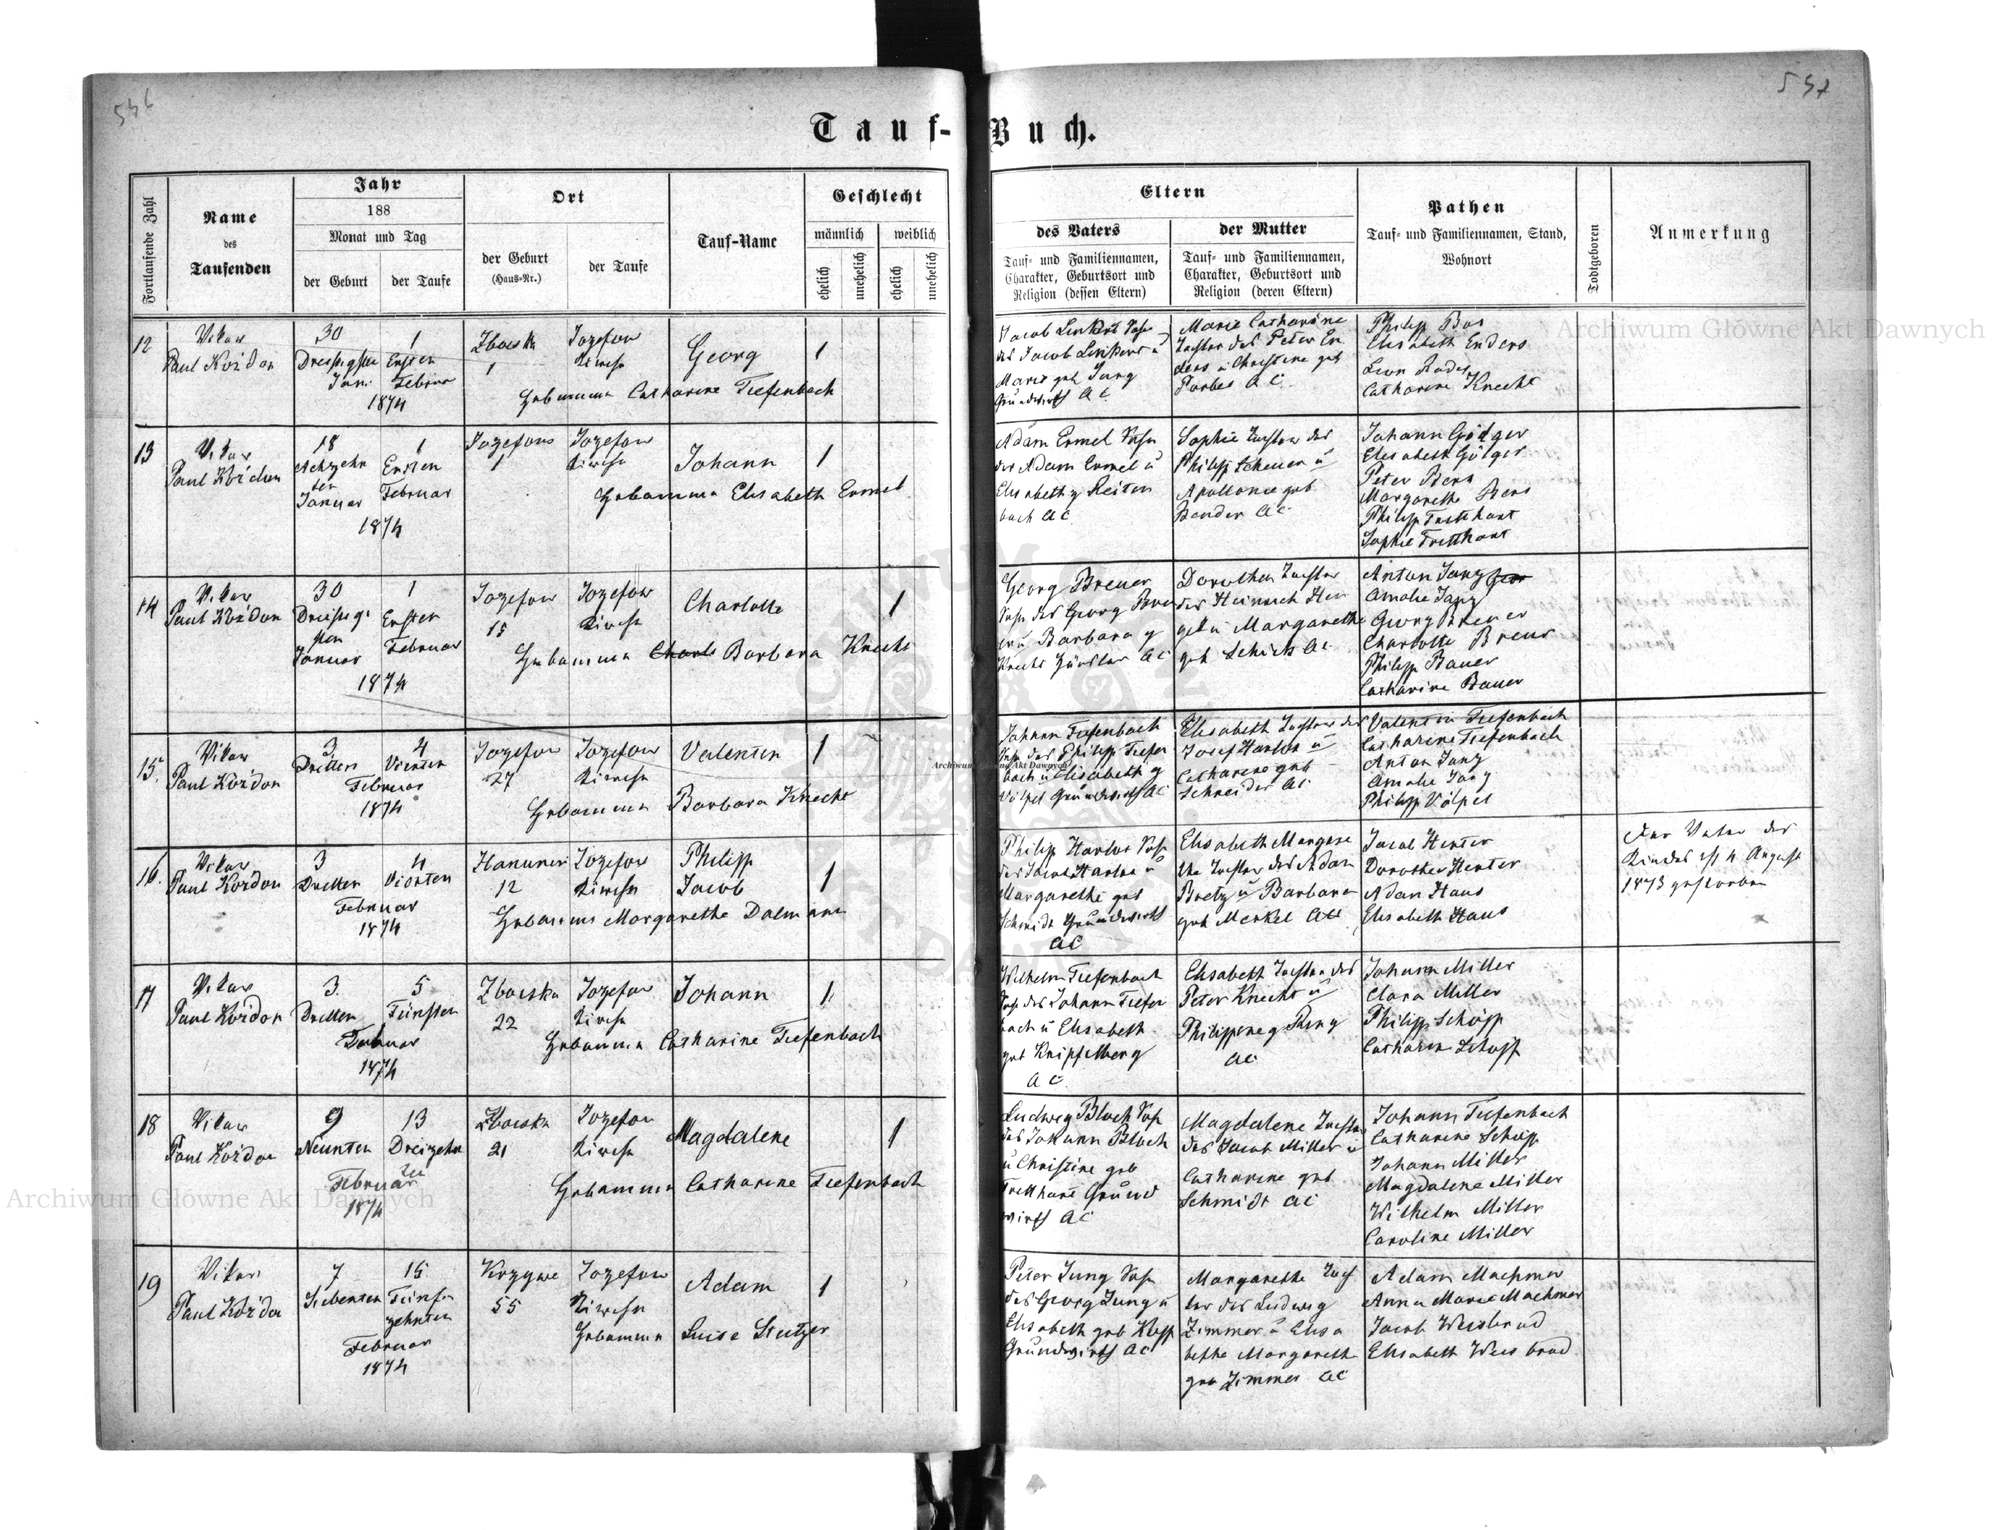 546
547
Tauf-Buch.
Fortlaufende Zahl
Name
des
Taufenden
Jahr
188
Monat und Tag
der Geburt
der Taufe
Ort
der Geburt
(Haus-Nr.)
der Taufe
Tauf-Name
Geschlecht
männlich
weiblich
ehelich
unehelich
ehelich
unehelich
Eltern
des Vaters
Tauf- und Familiennamen,
Charakter, Geburtsort und
Religion (dessen Eltern)
der Mutter
Tauf- und Familiennamen,
Charakter, Geburtsort und
Religion (deren Eltern)
Pathen
Tauf- und Familiennamen, Stand,
Wohnort
Todtgeboren
Anmerkung
12
Vikar
Paul Kożdon
30
1
Ersten
Februar
1874
Zboiska
1
Jozefow
Kirche
Georg
1
Hebamma Catharine Tiefenbach
Jacob Linkert Sohn
des Jacob Linkert u
Marie geb Jung
Grundwirth AC
Marie Catharine
Tochter des Peter En
ders u Christine geb
Forbes AC
Philipp Bos
Elisabeth Enders
Leon Rader
Catharine Knecht
13
Vikar
Paul Kożdon
18
Achzehn
ten
Januar
1
Ersten
Februar
1874
Jozefow
1
Jozefow
Kirche
Johann
1
Hebamma Elisabeth Ermel
Adam Ermel Sohn
des Adam Ermel u
Elisabeth g Reiten
bach AC
Sophie Tochter des
Philipp Scheuer u
Apollonie geb
Bender AC
Johann Götger
Elisabeth Götger
Peter
Margarethe
Philipp Tretthart
Sophie Tretthart
14
Vikar
Paul Kożdon
30
Dreisigs
ten
Januar
1
Ersten
Februar
1874
Jozefow
15
Jozefow
Kirche
Charlotte
1
Hebamma Charl Barbara Knecht
Georg Breuer
Sohn des Georg Breu
er u Barbara g
Knecht AC
Dorothea Tochter
des Heinrich Hen
gel u Margarethe
geb Schick AC
Anton Jung
Amalie Jung
Georg Breuer
Charlotte Breur
Philipp Bauer
Catharine Bauer
15.
Vikar
Paul Kożdon
3
Dritten
4
Vierten
Februar
1874
Jozefow
27
Jozefow
Kirche
Valentin
1
Hebamma Barbara Knecht
Johann Tiefenbach
Sohn des Philipp Tiefen
bach u Elisabeth g
Völpel Grundwirth AC
Elisabeth Tochter des
Josef Harlos u
Catharine geb
Schneider AC
Valentin Tiefenbach
Catharine Tiefenbach
Anton Jung
Amalie Jung
Philipp Völpel
16.
Vikar
Paul Kożdon
3
Dritten
4
Vierten
Februar
1874
Hanunin
12
Jozefow
Kirche
Philipp
Jacob
1
Hebamma Margarethe Dalmann
Philipp Harlos Sohn
des Jacob Harlos u
Margarethe geb
Schmidt Grundwirth
AC
Elisabeth Margare
the Tochter des Adam
Bretz u Barbara
geb Merkel AC
Jacob Henter
Dorothea Henter
Adam Haus
Elisabeth Haus
Der Vater des
Kindes ist 4 August
1873 gestorben
17
Vikar
Paul Kożdon
3.
Dritten
5
Fünften
Februar
1874
Zboiska
22
Jozefow
Kirche
Johann
1
Hebamma Catharine Tiefenbach
Wilhelm Tiefenbach
Sohn des Johann Tiefen
bach u Elisabeth
geb Knipfelberg
AC
Elisabeth Tochter des
Peter Knecht u
Philippine g
AC
Johann Miller
Clara Miller
Philipp Schöpp
Catharin Schopp
18
Vikar
Paul Kożdon
9
Neunten
13
Dreizehn
ten
Februar
1874
Zboiska
21
Jozefow
Kirche
Magdalene
1
Hebamma Catharine Tiefenbach
Ludwig Bloch Sohn
des Johann Bloch
u Christine geb
Tretthart Grund
wirth AC
Magdalene Tochter
des Jacob Miller u
Catharine geb
Schmidt AC
Johann Tiefenbach
Catharine Schöpp
Johann Miller
Magdalene Miller
Wilhelm Miller
Caroline Miller
19
Vikar
Paul Kożdon
7
Siebenten
15
Fünf
zehnten
Februar
1874
Krzywe
55
Jozefow
Kirche
Adam
1
Hebamma Luise Stutzer
Peter Jung Sohn
des Georg Jung u
Elisabeth geb Kopp
Grundwirth AC
Margarethe Toch
ter des Ludwig
Zimmer u Elisa
betha Margareth
geb Zimmer AC
Adam Machmer
Anna Marie Machmer
Jacob Weisbrod
Elisabeth Weisbrod
Archiwum Główne Akt Dawnych
Archiwum Główne Akt Dawnych
Archiwum Główne Akt Dawnych